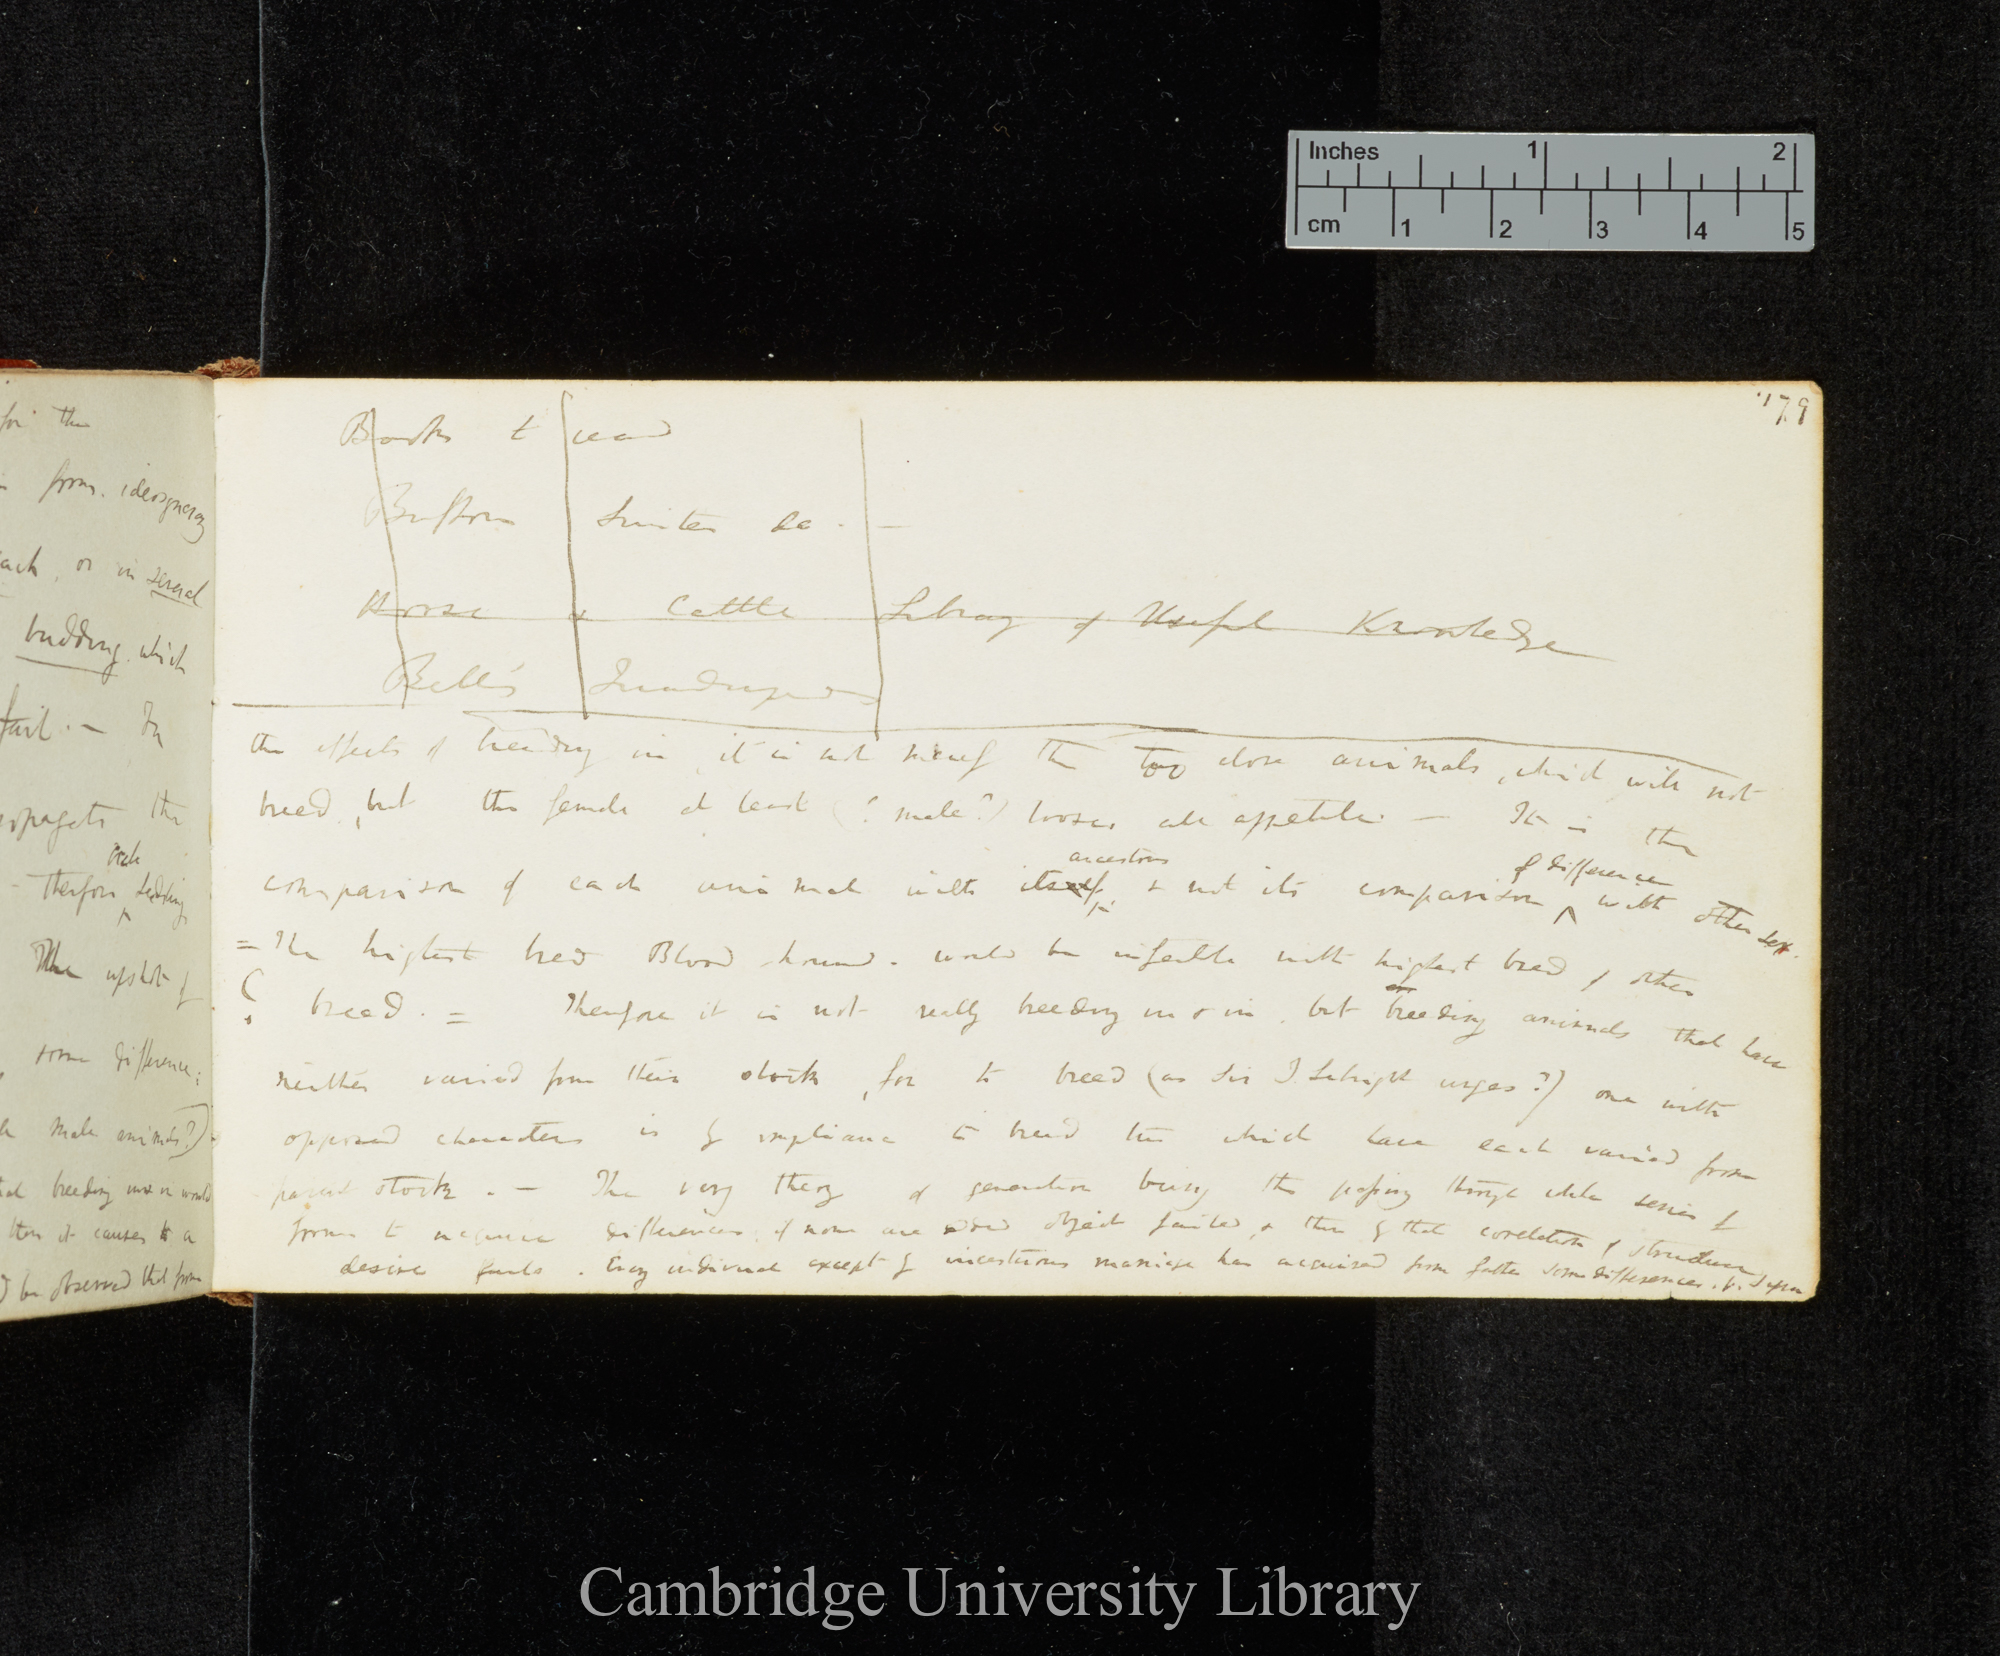 for the
from. ideosyncracy
each, or in several
budding. which
fail. — In
propagate the
each
therefore ^ seedling
The upshot of
some difference;
male animals?)
breeding in & in would
then it causes to a
be observed that from
179
Books to read
Buffon Suites de. —
Horse & Cattle Library of Useful Knowledge
Bell's Quadrupeds
the effects of breeding in, it is not merely the too close animals, which will not
breed, but the female at least (? male?) looses all appetite. — It is the
ancestors of difference
comparison of each animal with itself, & not its comparison ^ with other sex.
= The highest bred Blood hound. would be infertile with highest bred of other
? breed. = Therefore it is not really breeding in & in, but breeding animals that have
neither varied from their stock, for to breed (as Sir J. Sebright urges?) one with
opposed characters is by compliance to breed two which have each varied from
parent stock. — The very theory of generation being the passing through whole series of
forms to acquire differences, if none are added object failed, & then by that corelation of structure
desire fails. Every individual except by incestuous marriage has acquired from father some differences.
Inches 1 2
cm 1 2 3 4 5
Cambridge University Library